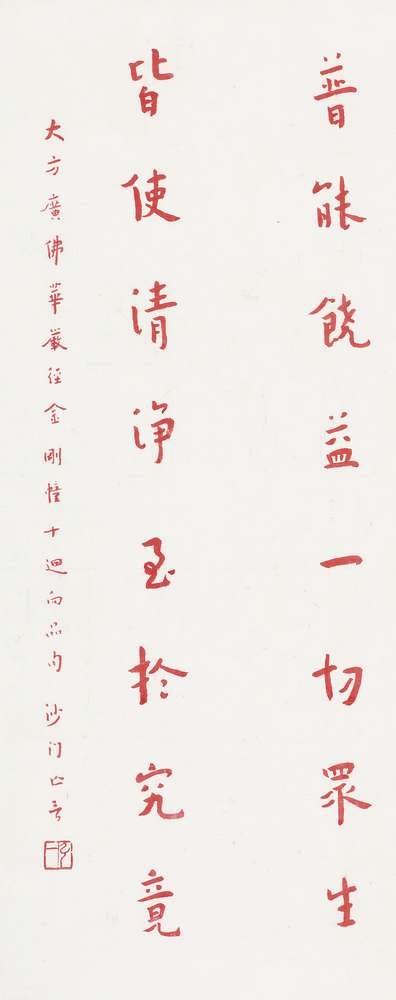 普能饒益一切眾生
皆使清淨至於究竟
大方廣佛華嚴經金剛幢十迴向品句 沙门亡言